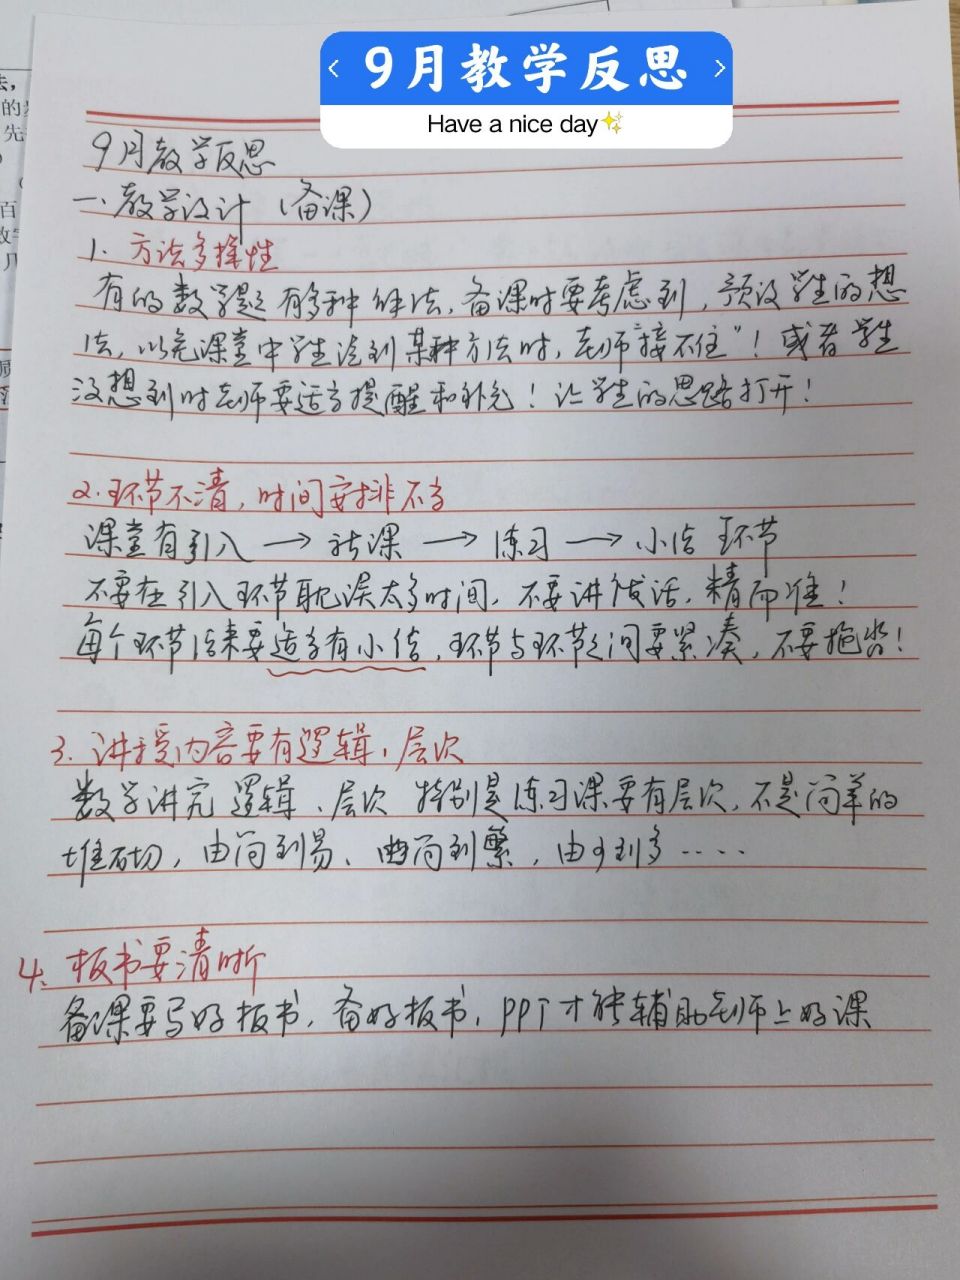 9月教学反思
Have a nice day✨
9月教学反思
一、教学设计（备课）
1. 方法多择性
有的数学题有多种解法，备课时要考虑到，预设学生的想
法，以免课堂中学生说到某种方法时，老师"接不住"！或者学生
没想到时老师要适当提醒和补充！让学生的思路打开！
2. 环节不清，时间安排不当
课堂有引入 → 新课 → 练习 → 小结 环节
不要在引入环节耽误太多时间，不要讲废话，精而准！
每个环节结束要适当有小结，环节与环节之间要紧凑，不要拖沓！
3. 讲授内容要有逻辑、层次
数学讲究逻辑、层次 特别是练习课要有层次，不是简单的
堆砌，由简到易、由简到繁，由少到多……
4. 板书要清晰
备课要写好板书，备好板书，PPT才能辅助老师上好课